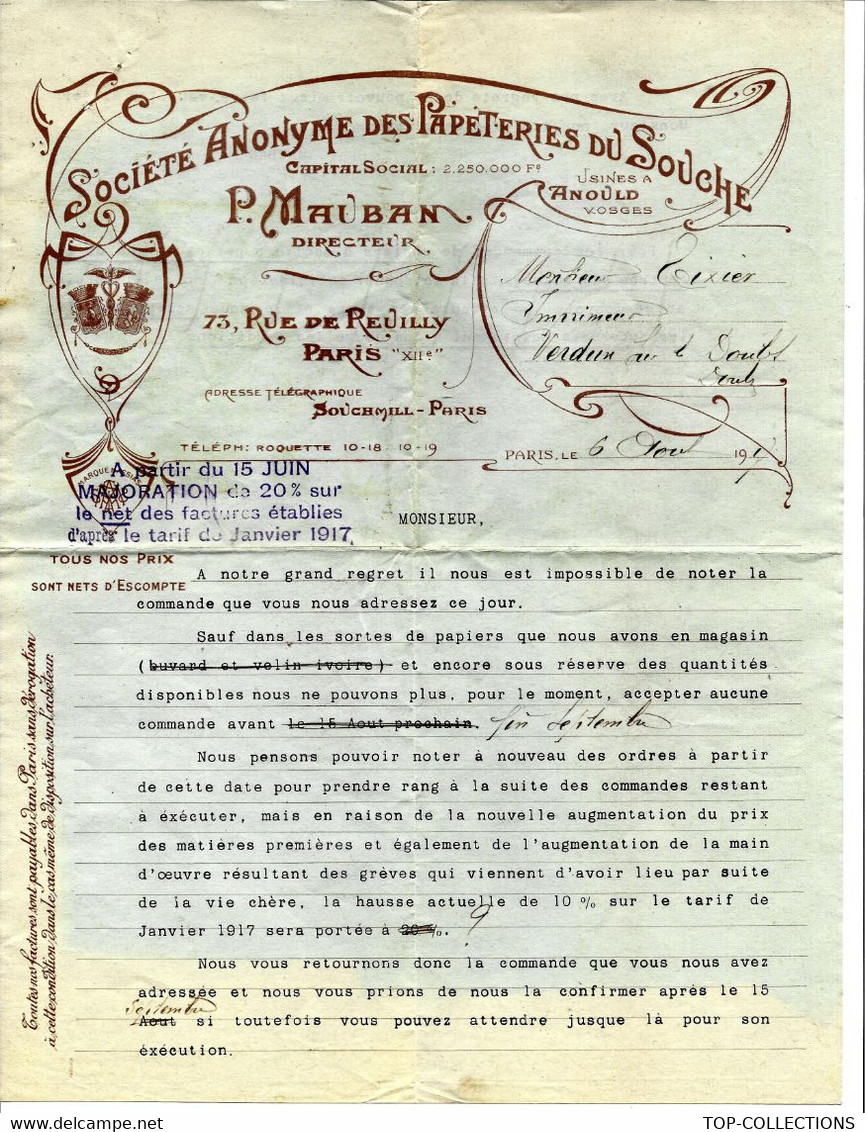 SOCIÉTÉ ANONYME DES PAPÉTERIES DU SOUCHE
CAPITAL SOCIAL : 2.250.000 Fs
USINES A
ANOULD
VOSGES
P. MAUBAN
DIRECTEUR
73, RUE DE REUILLY
PARIS "XIIe"
ADRESSE TÉLÉGRAPHIQUE
SOUCHMILL-PARIS
TÉLÉPH: ROQUETTE 10-18 10-19
Monsieur Tixier
Imprimeur
Verdun sur le Doubs
PARIS, LE 6 Aout 1917
MARQUE
A partir du 15 JUIN
MAJORATION de 20% sur
le net des factures établies
d'après le tarif de Janvier 1917
TOUS NOS PRIX
SONT NETS D'ESCOMPTE
MONSIEUR,
A notre grand regret il nous est impossible de noter la
commande que vous nous adressez ce jour.
Sauf dans les sortes de papiers que nous avons en magasin
(buvard et velin ivoire) et encore sous réserve des quantités
disponibles nous ne pouvons plus, pour le moment, accepter aucune
commande avant le 15 Aout prochain. fin Septembre
Nous pensons pouvoir noter à nouveau des ordres à partir
de cette date pour prendre rang à la suite des commandes restant
à éxécuter, mais en raison de la nouvelle augmentation du prix
des matières premières et également de l'augmentation de la main
d'œuvre résultant des grèves qui viennent d'avoir lieu par suite
de la vie chère, la hausse actuelle de 10 % sur le tarif de
Janvier 1917 sera portée à 20 %. ?
Nous vous retournons donc la commande que vous nous avez
adressée et nous vous prions de nous la confirmer après le 15
Septembre
Aout si toutefois vous pouvez attendre jusque là pour son
éxécution.
Toutes nos factures sont payables dans Paris sans dérogation
à cette condition dans le cas même de disposition sur l'acheteur.
TOP-COLLECTIONS